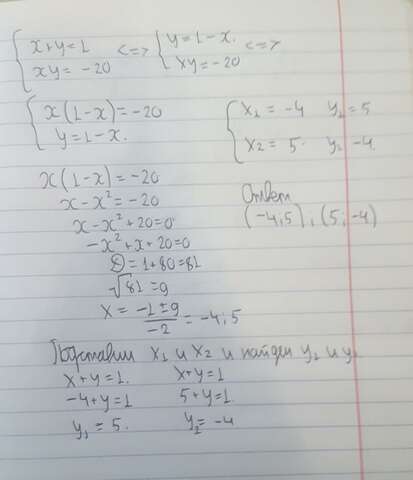 { x+y=1 <=> { y=1-x. <=>
{ xy=-20 { xy=-20
{ x(1-x)=-20
{ y=1-x.
{ x₁=-4 y₁=5
{ x₂=5 y₂-4
x(1-x)=-20
x-x²=-20
x-x²+20=0
-x²+x+20=0
D=1+80=81
√81=9
x= (-1±9)/(-2) =-4;5
Ответ
(-4;5), (5;-4)
Подставим x₁ и x₂ и найдем y₁ и y₂
x+y=1. x+y=1
-4+y=1 5+y=1.
y₁=5. y₂=-4